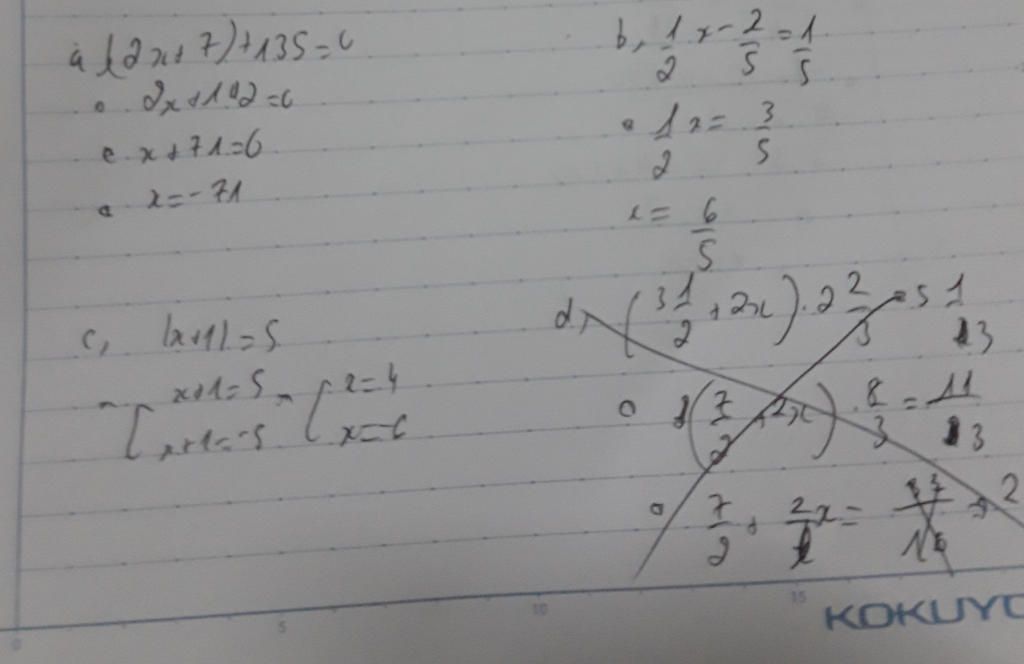 a, (2x+7)+135=0
2x+142=0
x+71=0
x=-71
b, 1/2 x - 2/5 = 1/5
1/2 x = 3/5
x = 6/5
c, |x+1|=5
[x+1=5 [x=4
x+1=-5 x=-6
d, (3 1/2 + 2x) . 2 2/3 = 5 1/3
(7/2 + 2x) . 8/3 = 11/3
7/2 + 2 x =
5
10
15
KOKUYO